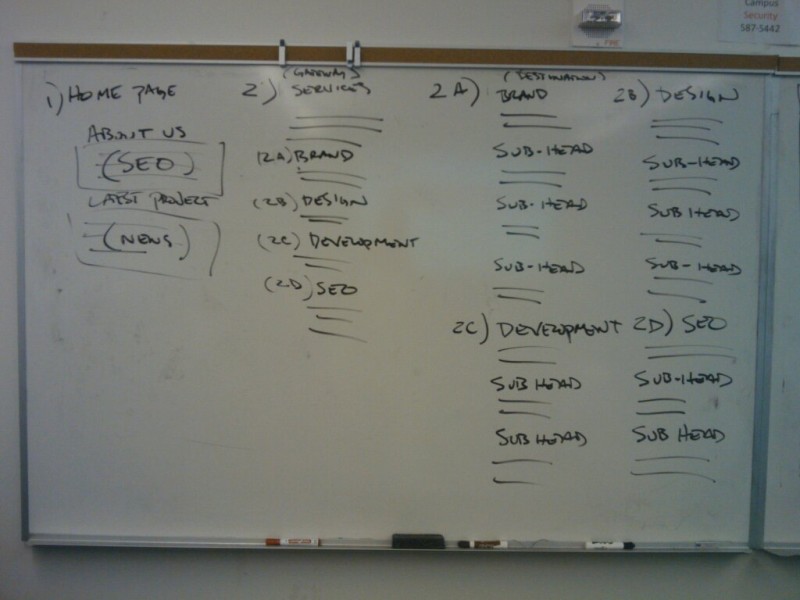 Campus
Security
587-5442
FIRE
1) HOME PAGE
ABOUT US
(SEO)
LATEST PROJECT
(NEWS)
2) (GATEWAY)
SERVICES
(2A) BRAND
(2B) DESIGN
(2C) DEVELOPMENT
(2D) SEO
2A) (DESTINATION)
BRAND
SUB-HEAD
SUB-HEAD
SUB-HEAD
2B) DESIGN
SUB-HEAD
SUB HEAD
SUB-HEAD
2C) DEVELOPMENT
SUB HEAD
SUB HEAD
2D) SEO
SUB-HEAD
SUB HEAD